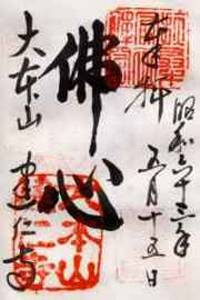 奉拝
昭和六十三年
五月十五日
佛心
大本山
建仁寺
大本山